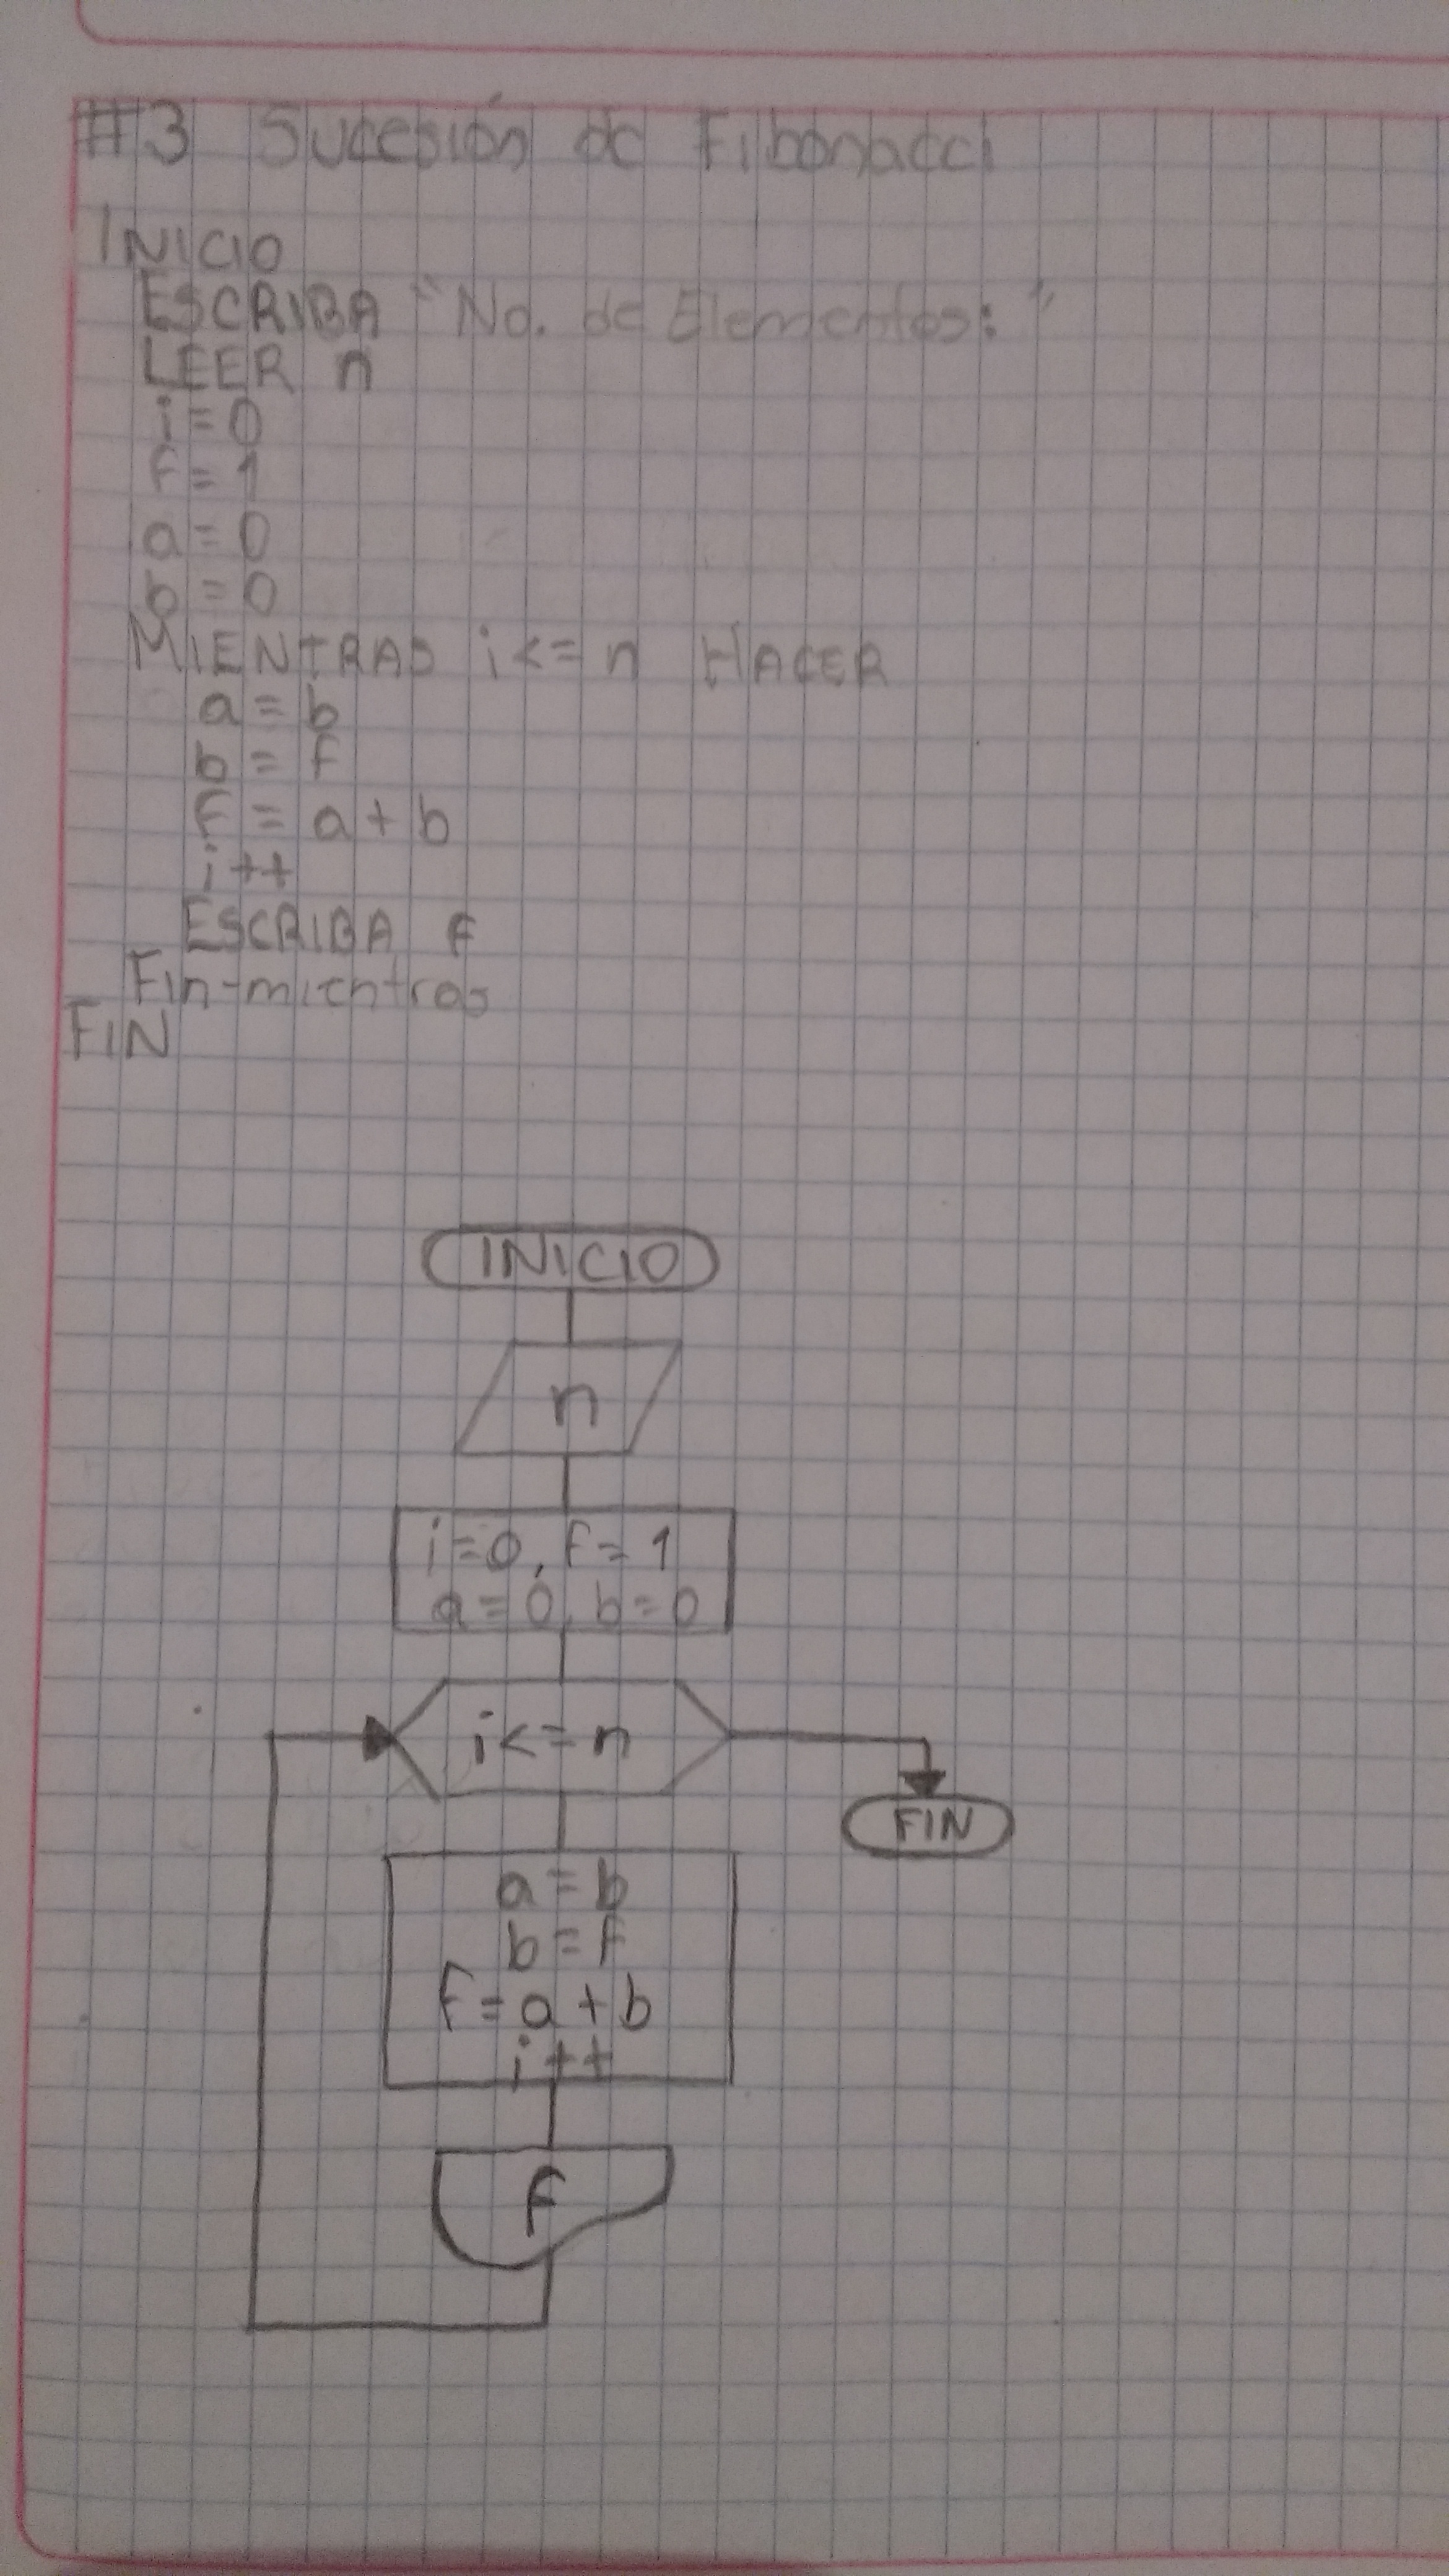 #3 Sucesión de Fibonacci
INICIO
ESCRIBA "No. de Elementos: "
LEER n
i=0
f=1
a=0
b=0
MIENTRAS i<=n HACER
a=b
b=f
f=a+b
i++
ESCRIBA f
Fin-mientras
FIN
INICIO
n
i=0, f=1
a=0, b=0
i<=n
FIN
a=b
b=f
f=a+b
i++
f